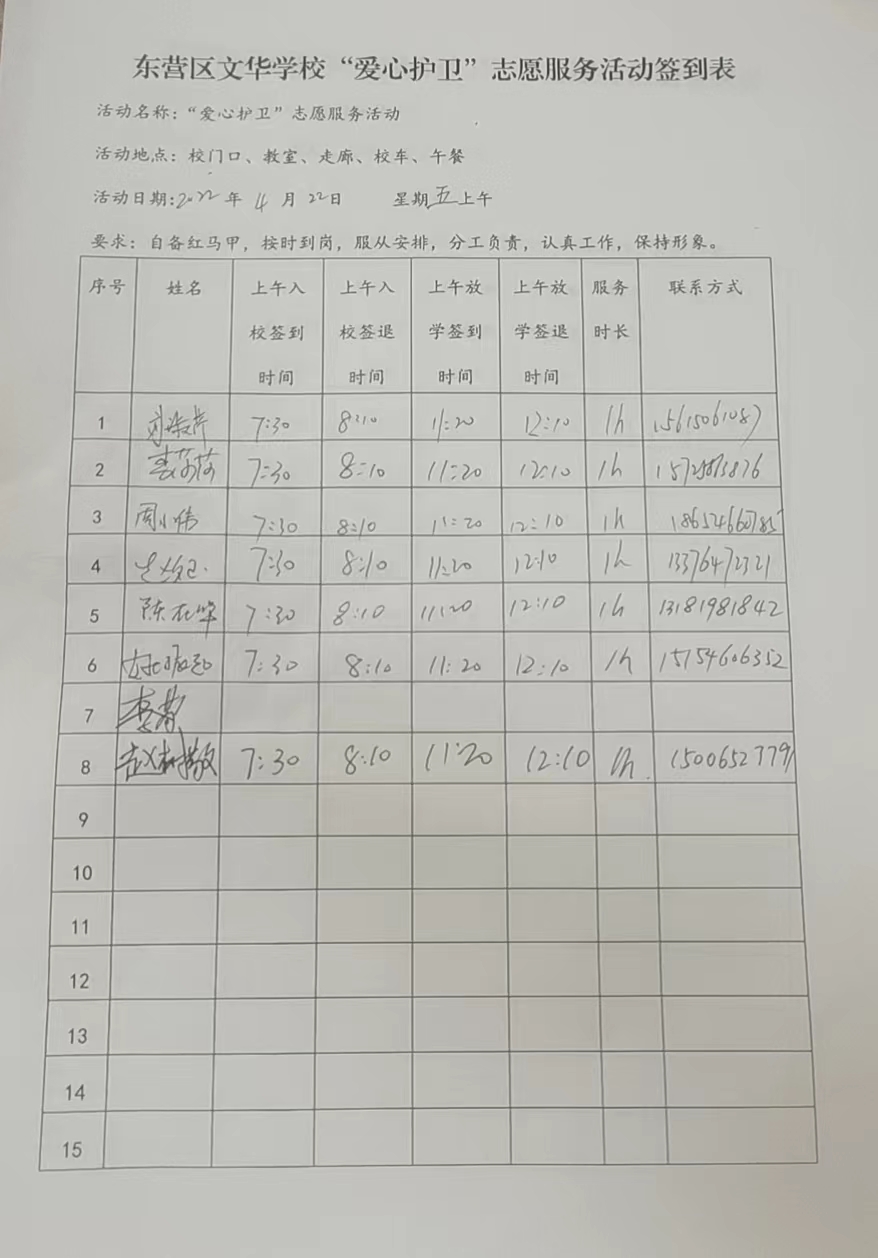 东营区文华学校“爱心护卫”志愿服务活动签到表
活动名称：“爱心护卫”志愿服务活动
活动地点：校门口、教室、走廊、校车、午餐
活动日期：2022年 4月 22日 星期五上午
要求：自备红马甲，按时到岗，服从安排，分工负责，认真工作，保持形象。
序号 姓名 上午入校签到时间 上午入校签退时间 上午放学签到时间 上午放学签退时间 服务时长 联系方式
1 7:30 8:10 11:20 12:10 1h 15615061087
2 7:30 8:10 11:20 12:10 1h
3 周小伟 7:30 8:10 11:20 12:10 1h
4 7:30 8:10 11:20 12:10 1h 13376472321
5 7:30 8:10 11:20 12:10 1h 13181981842
6 7:30 8:10 11:20 12:10 1h 15154606352
7
8 赵树敬 7:30 8:10 11:20 12:10 1h. 15006527791
9
10
11
12
13
14
15